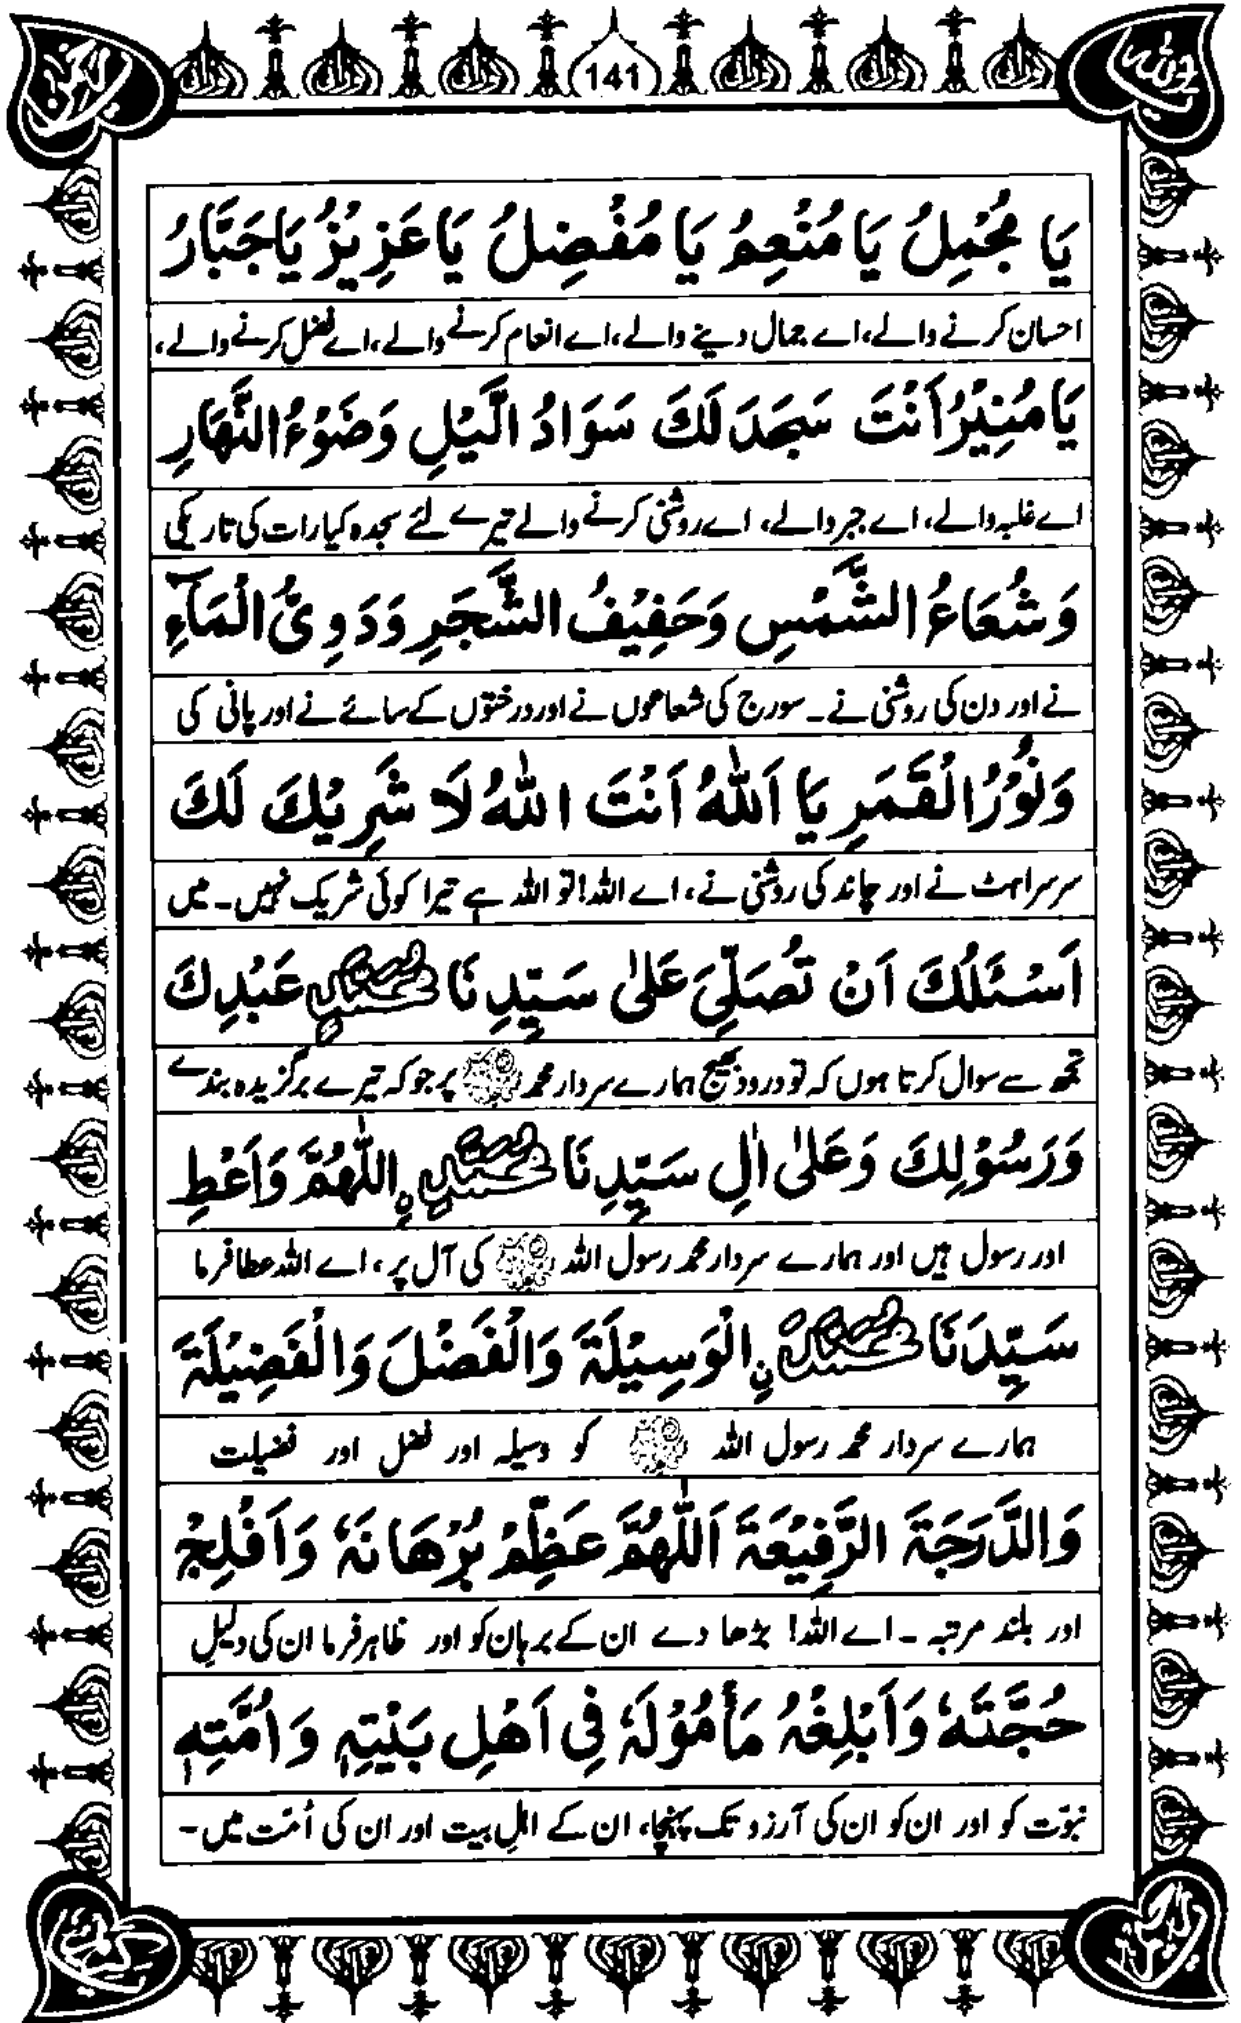 141
يَا مُجْمِلُ يَا مُنْعِمُ يَا مُفْضِلُ يَا عَزِيْزُ يَا جَبَّارُ
احسان کرنے والے، اے جمال دینے والے، اے انعام کرنے والے، اے فضل کرنے والے،
يَا مُنِيْرُ اَنْتَ سَجَدَ لَكَ سَوَادُ الَّيْلِ وَضَوْءُ النَّهَارِ
اے غلبہ والے، اے جبر والے، اے روشنی کرنے والے تیرے لئے سجدہ کیا رات کی تاریکی
وَشُعَاعُ الشَّمْسِ وَحَفِيْفُ الشَّجَرِ وَدَوِىُّ الْمَآءِ
نے اور دن کی روشنی نے۔ سورج کی شعاعوں نے اور درختوں کے سائے نے اور پانی کی
وَنُوْرُ الْقَمَرِ يَا اَللّٰهُ اَنْتَ اللّٰهُ لَا شَرِيْكَ لَكَ
سرسراہٹ نے اور چاند کی روشنی نے، اے اللہ! تو اللہ ہے تیرا کوئی شریک نہیں۔ میں
اَسْئَلُكَ اَنْ تُصَلِّىَ عَلٰى سَيِّدِنَا مُحَمَّدٍ عَبْدِكَ
تجھ سے سوال کرتا ہوں کہ تو درود بھیج ہمارے سردار محمد ﷺ پر جو کہ تیرے برگزیدہ بندے
وَرَسُوْلِكَ وَعَلٰى اٰلِ سَيِّدِنَا مُحَمَّدٍ اِللّٰهُمَّ وَاَعْطِ
اور رسول ہیں اور ہمارے سردار محمد رسول اللہ ﷺ کی آل پر، اے اللہ عطا فرما
سَيِّدَنَا مُحَمَّدَ نِ الْوَسِيْلَةَ وَالْفَضْلَ وَالْفَضِيْلَةَ
ہمارے سردار محمد رسول اللہ ﷺ کو وسیلہ اور فضل اور فضیلت
وَالدَّرَجَةَ الرَّفِيْعَةَ اَللّٰهُمَّ عَظِّمْ بُرْهَانَهٗ وَاَفْلِجْ
اور بلند مرتبہ ۔ اے اللہ! بڑھا دے ان کے برہان کو اور ظاہر فرما ان کی دلیلِ
حُجَّتَهٗ وَاَبْلِغْهُ مَأْمُوْلَهٗ فِى اَهْلِ بَيْتِهٖ وَاُمَّتِهٖ
نبوّت کو اور ان کو ان کی آرزو تک پہنچا، ان کے اہلِ بیت اور ان کی اُمّت میں۔